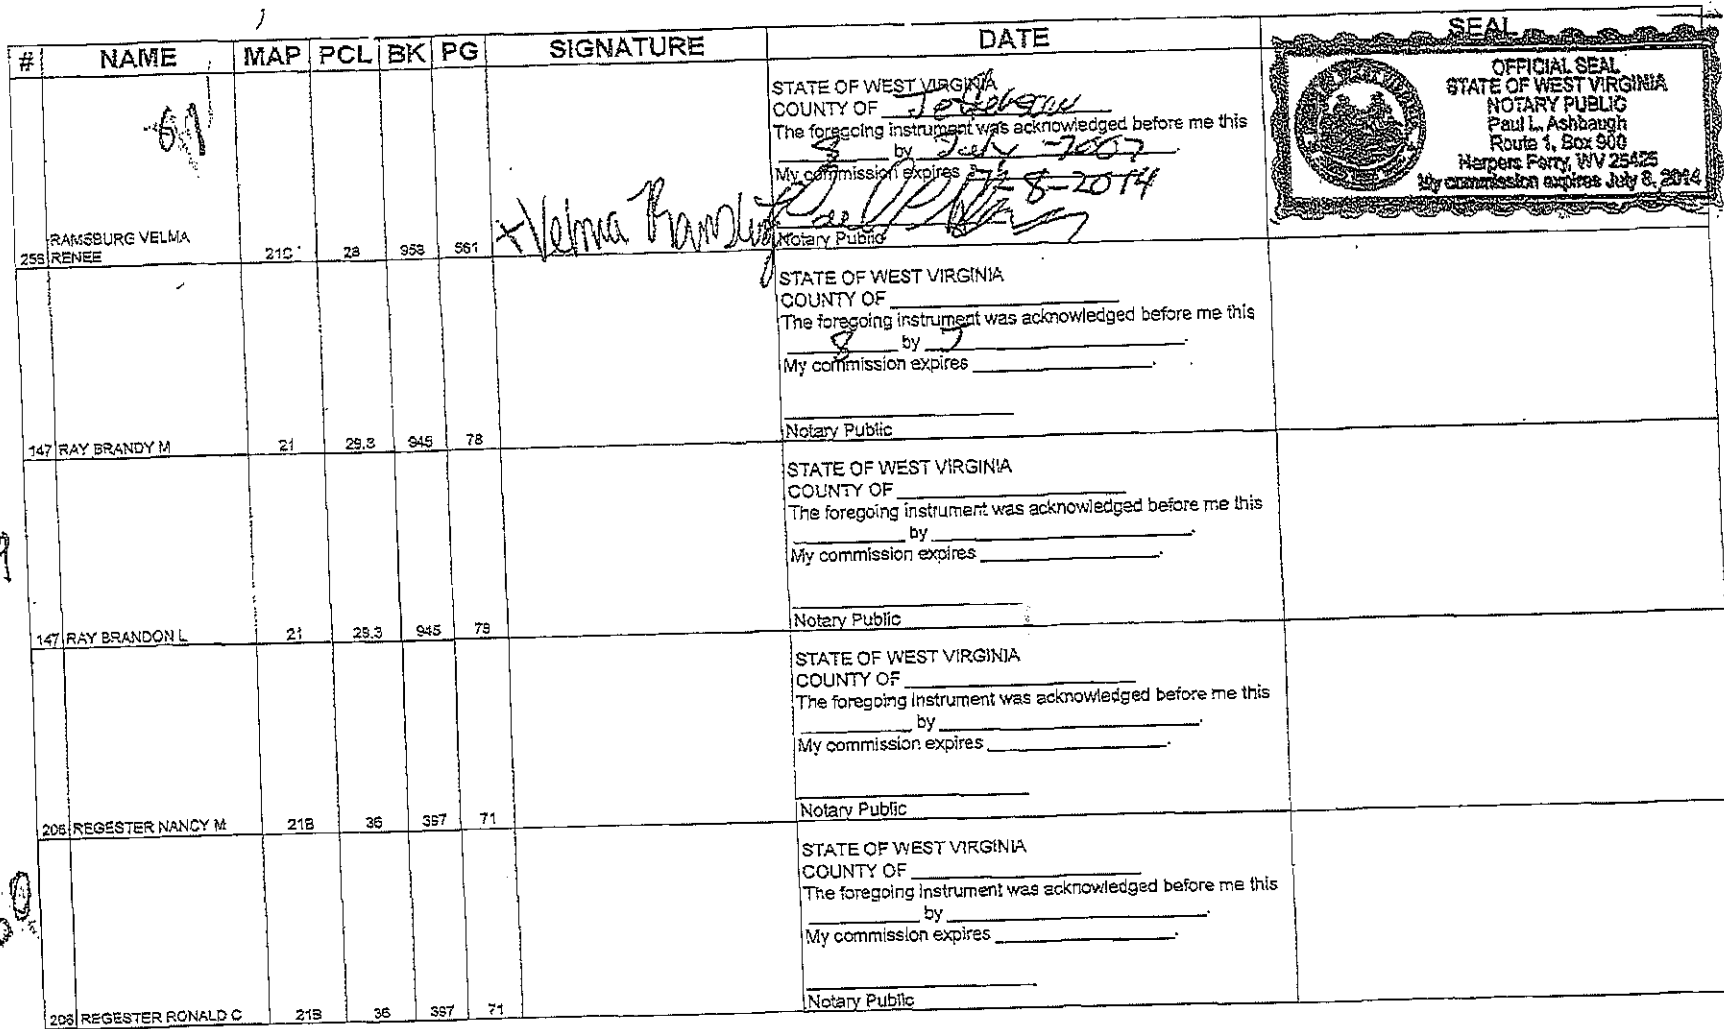 # NAME MAP PCL BK PG SIGNATURE DATE SEAL
STATE OF WEST VIRGINIA
COUNTY OF Jefferson
The foregoing instrument was acknowledged before me this
8 by July
My commission expires 7-8-2014
Velma
Notary Public
RAMSBURG VELMA
RENEE 21C 28 958 561
OFFICIAL SEAL
STATE OF WEST VIRGINIA
NOTARY PUBLIC
Paul L. Ashbaugh
Route 1, Box 900
Harpers Ferry, WV 25425
My commission expires July 8, 2014
STATE OF WEST VIRGINIA
COUNTY OF
The foregoing instrument was acknowledged before me this
8 by J
My commission expires
Notary Public
147 RAY BRANDY M 21 29.3 945 78
STATE OF WEST VIRGINIA
COUNTY OF
The foregoing instrument was acknowledged before me this
by
My commission expires
Notary Public
147 RAY BRANDON L 21 29.3 945 78
STATE OF WEST VIRGINIA
COUNTY OF
The foregoing instrument was acknowledged before me this
by
My commission expires
Notary Public
206 REGESTER NANCY M 21B 36 397 71
STATE OF WEST VIRGINIA
COUNTY OF
The foregoing instrument was acknowledged before me this
by
My commission expires
Notary Public
206 REGESTER RONALD C 21B 36 397 71